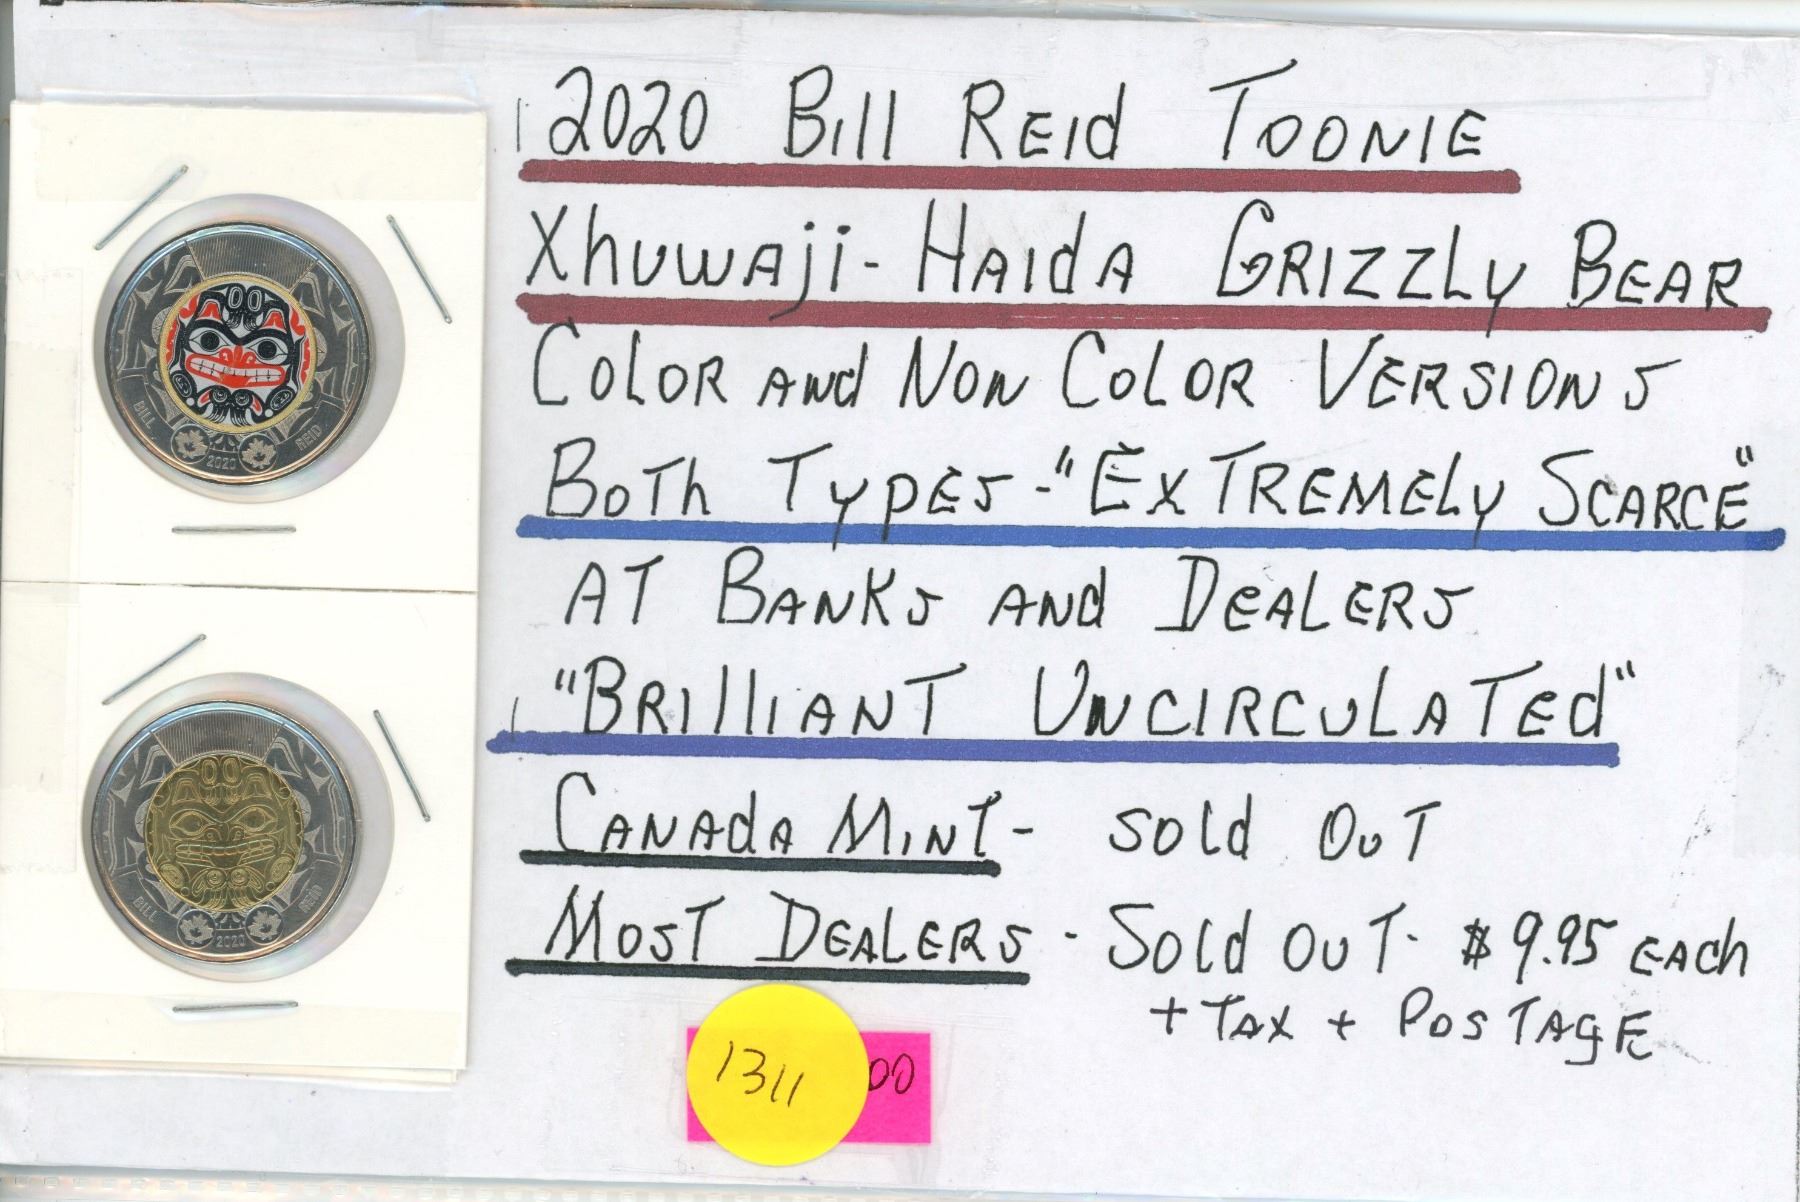 BILL REID
2020
BILL REID
2020
2020 Bill Reid Toonie
Xhuwaji - Haida Grizzly Bear
Color and Non Color Versions
Both Types - "Extremely Scarce"
at Banks and Dealers
"Brilliant Uncirculated"
Canada Mint - Sold Out
Most Dealers - Sold Out - $9.95 each
+ Tax + Postage
1311
00